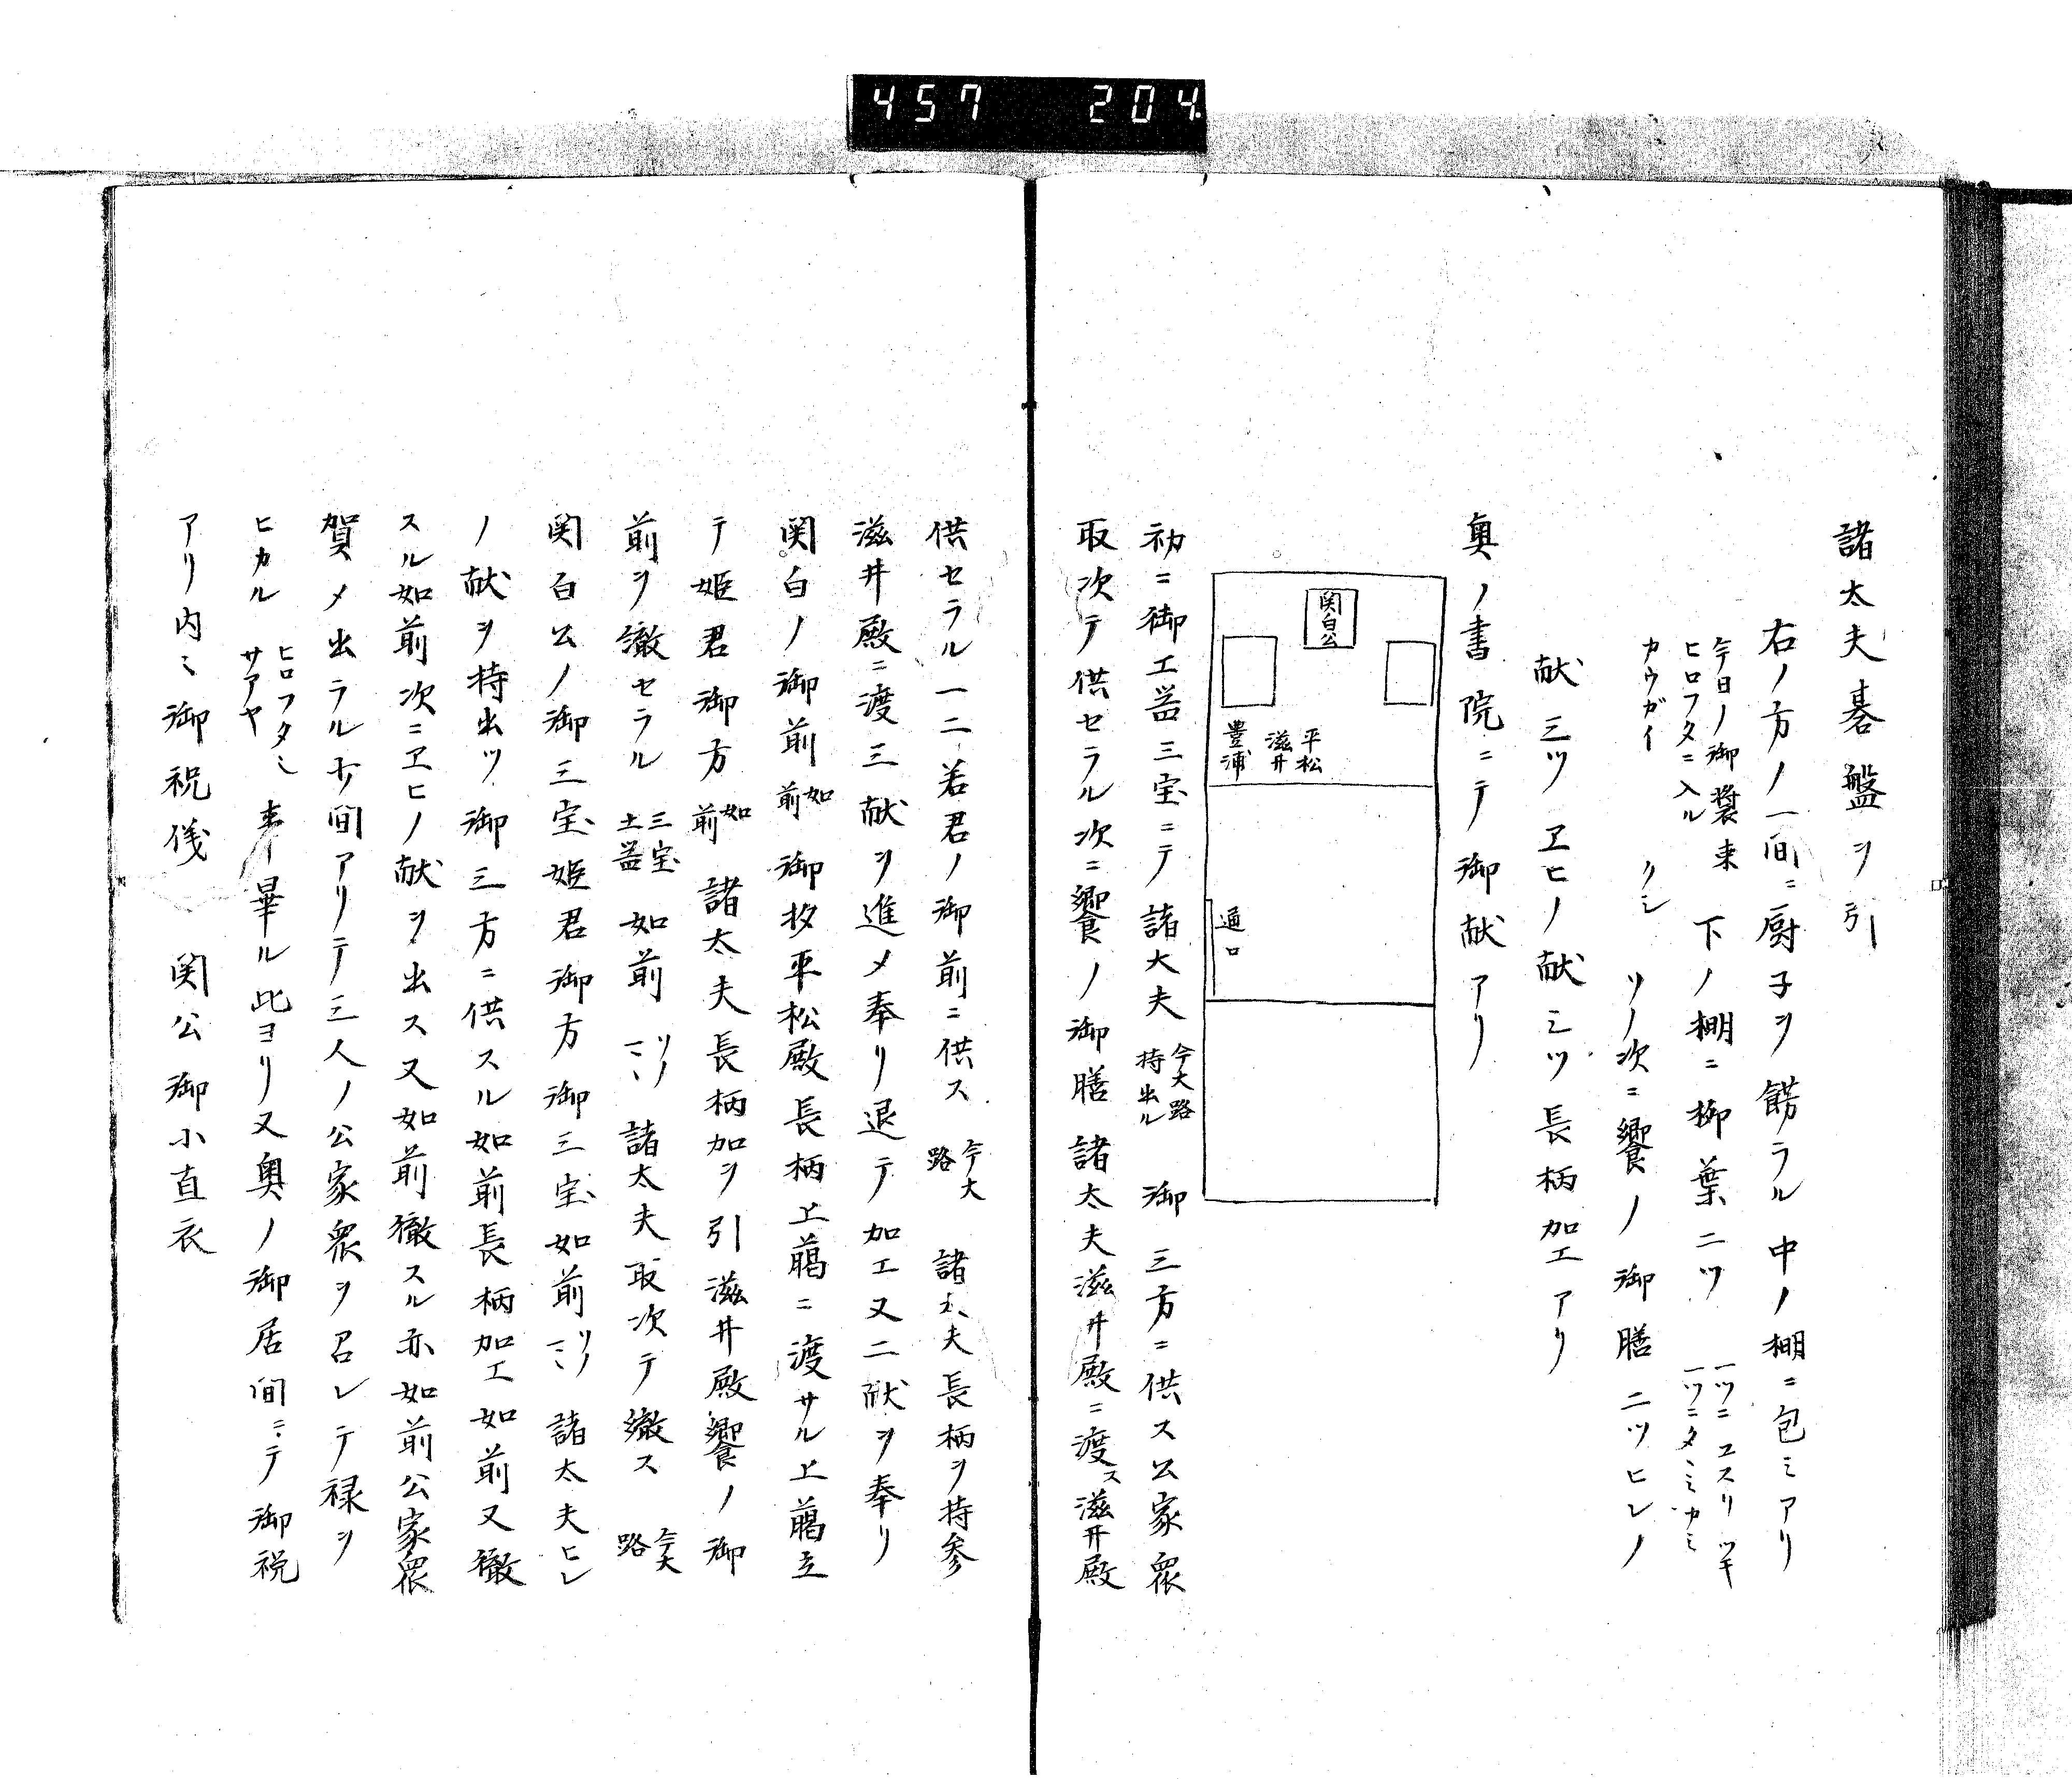 457 204
諸太夫碁盤ヲ引
右ノ方ノ一間ニ厨子ヲ餝ラル中ノ棚ニ包ミアリ
今日ノ御装束
ヒロフタニ入ル
下ノ棚ニ柳葉二ツ
一ツニユスリツキ
一ツニタヽミカミ
カウガイ クシ
ソノ次ニ饗ノ御膳二ツヒレノ
献三ツヱヒノ献三ツ長柄加エアリ
奥ノ書院ニテ御献アリ
関白公
平松
滋井
豊浦
通口
初ニ御工盃三宝ニテ諸大夫
今大路
持出ル
御三方ニ供ス公家衆
取次テ供セラル次ニ饗ノ御膳諸太夫滋井殿ニ渡ス滋井殿
供セラル一二若君ノ御前ニ供ス
今大
路
諸太夫長柄ヲ持参
滋井殿ニ渡三献ヲ進メ奉リ退テ加エ又二献ヲ奉リ
関白ノ御前
如
前
御扙平松殿長柄上﨟ニ渡サル上﨟立
テ姫君御方
如
前
諸太夫長柄加ヲ引滋井殿饗ノ御
前ヲ徹セラル
三宝
土器
如前
諸太夫取次テ徹ス
今大
路
関白公ノ御三宝姫君御方御三宝如前
諸太夫ヒレ
ノ献ヲ持出ツ御三方ニ供スル如前長柄加エ如前又徹
スル如前次ニヱヒノ献ヲ出ス又如前徹スル亦如前公家衆
賀メ出ラル少間アリテ三人ノ公家衆ヲ召レテ禄ヲ
ヒカル
ヒロフタミ
サアヤ
事畢ル此ヨリ又奥ノ御居間ニテ御祝
アリ内ミ御祝儀 関公御小直衣